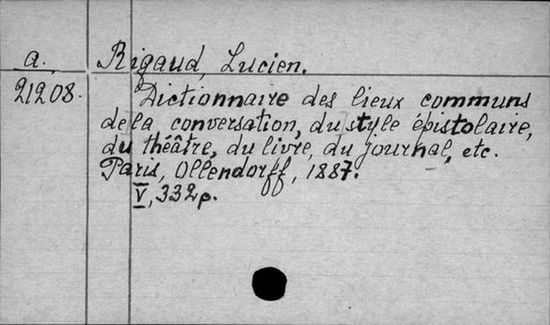 a. Rigaud, Lucien.
21208. Dictionnaire des lieux communs
de la conversation, du style épistolaire,
du théâtre, du livre, du journal, etc.
Paris, Ollendorff, 1887.
V, 332 p.